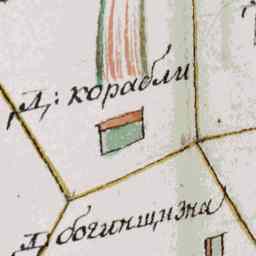 Д: корабли
Д: богинщизна